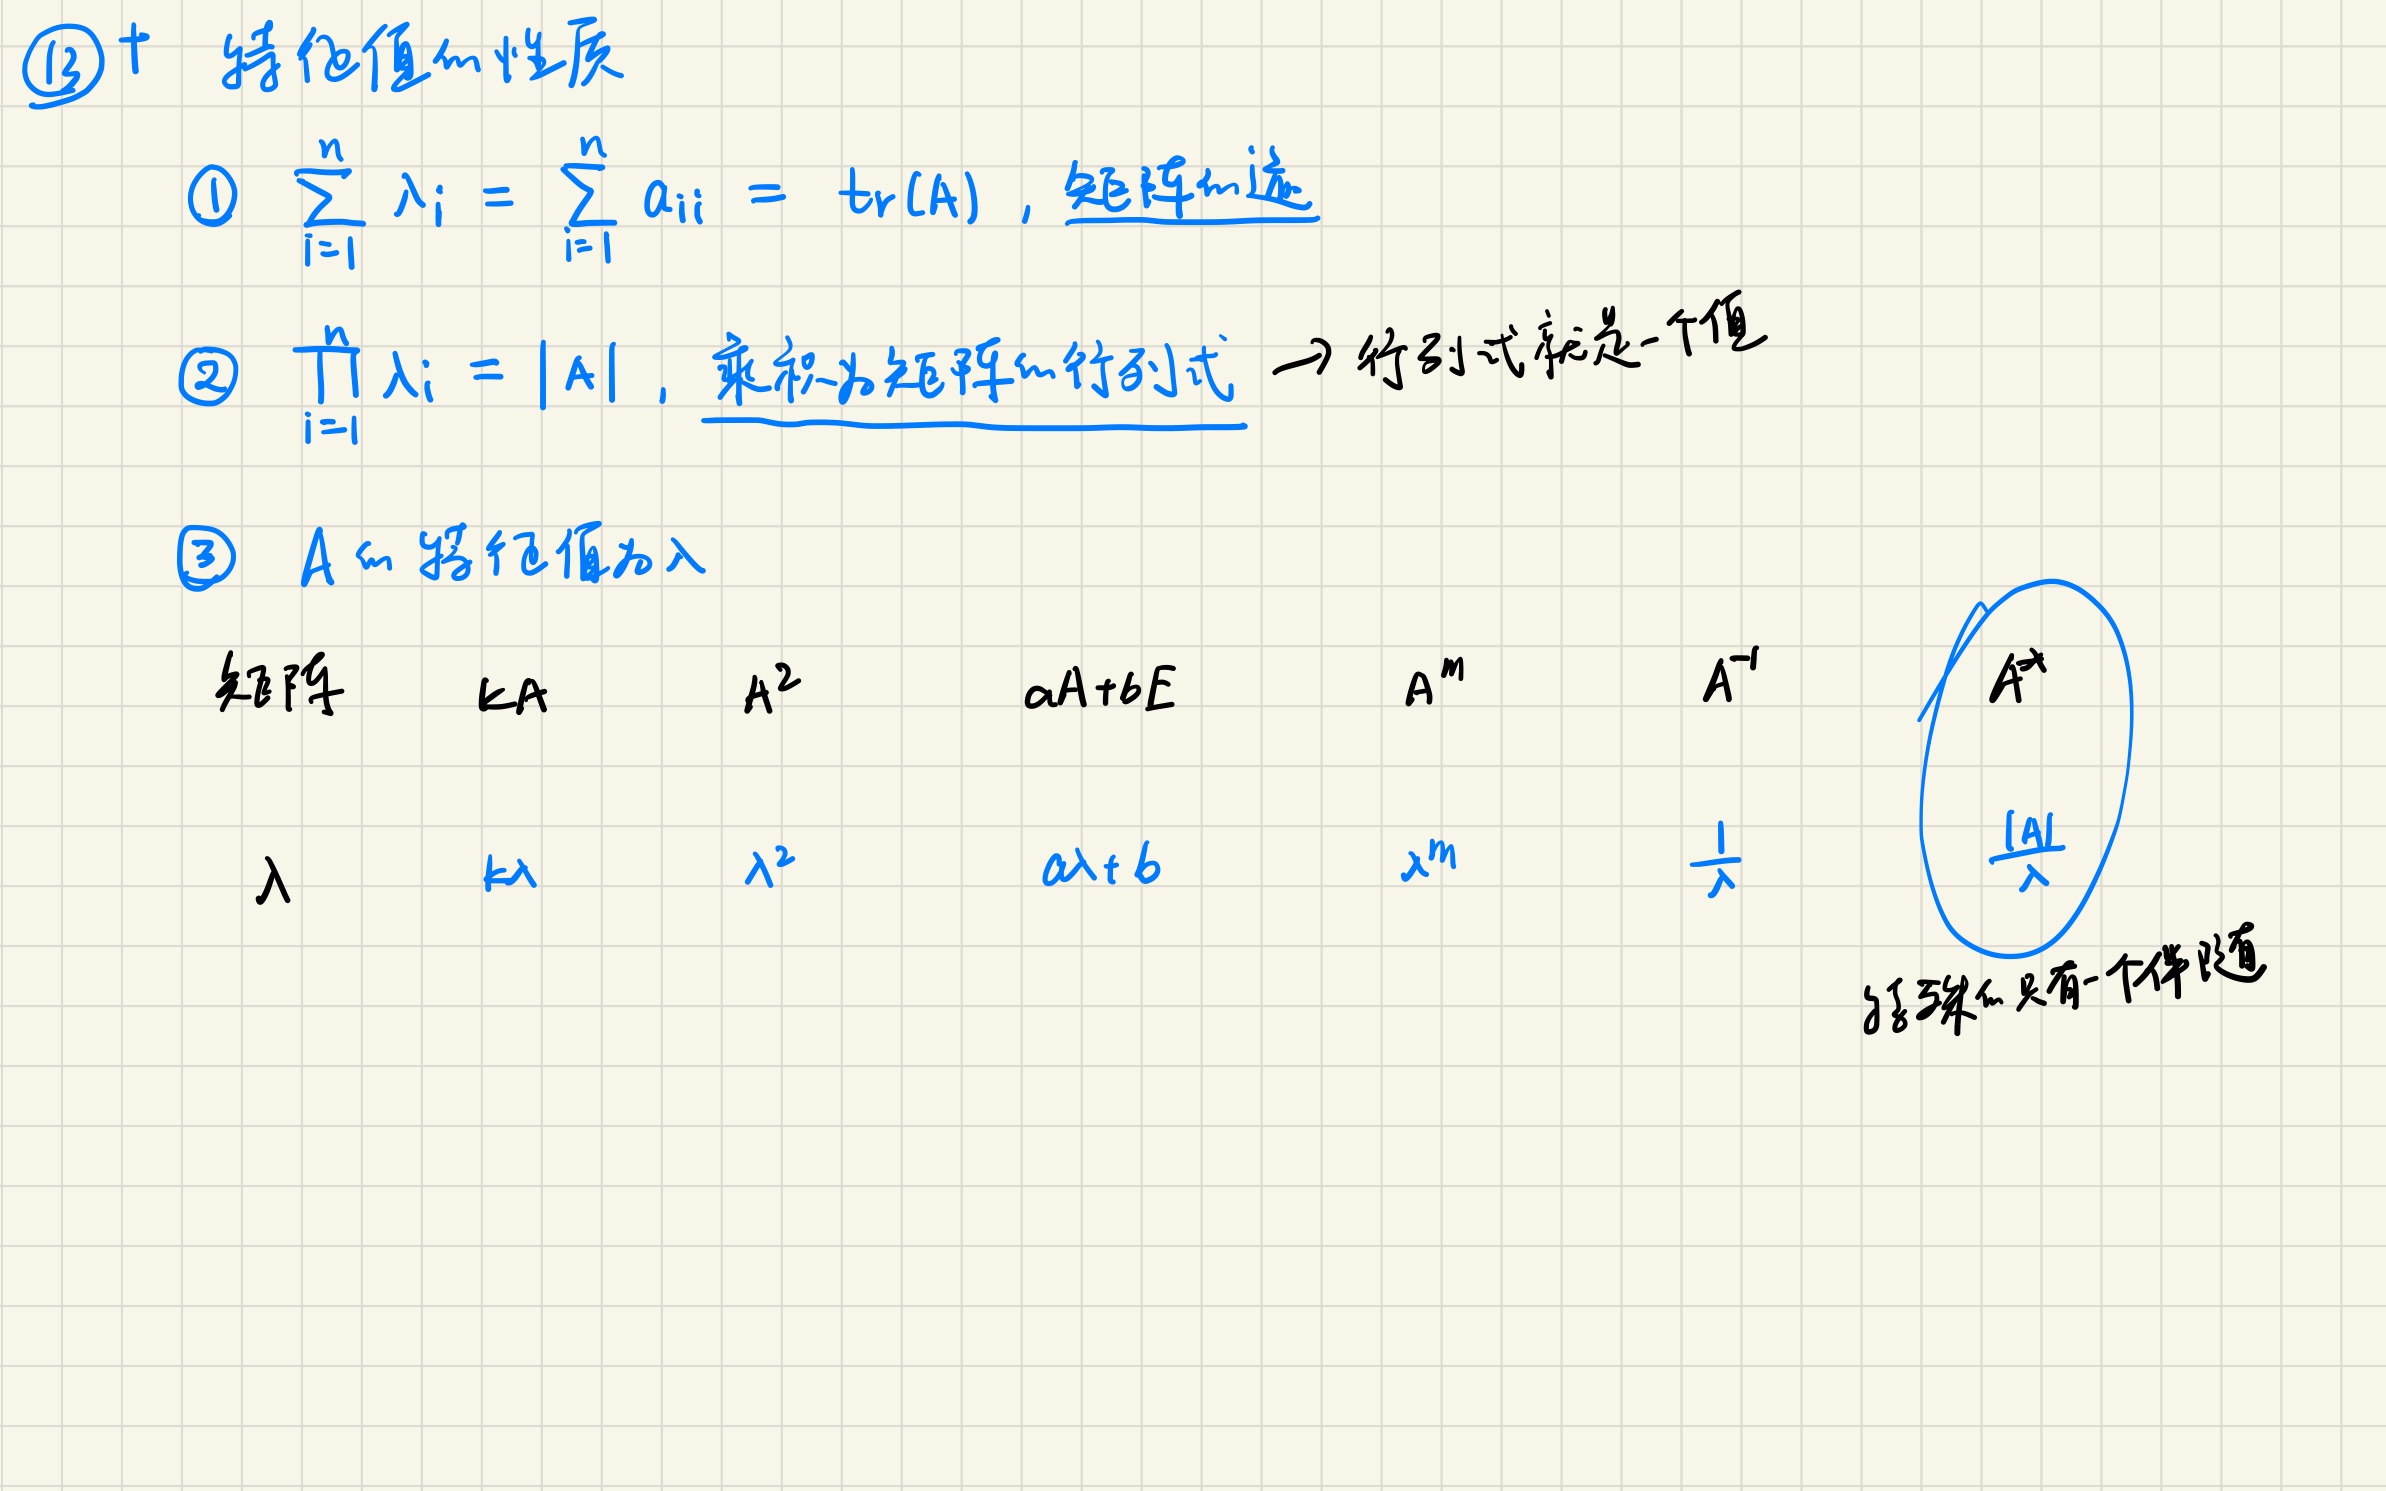 ⑫† 特征值的性质
① \sum_{i=1}^{n} λ_i = \sum_{i=1}^{n} a_{ii} = tr(A), 矩阵的迹
② \prod_{i=1}^{n} λ_i = |A|, 乘积为矩阵的行列式 → 行列式就是一个值
③ A的特征值为λ
矩阵 kA A² aA+bE A^m A^{-1} A^*
λ kλ λ² aλ+b λ^m 1/λ |A|/λ
只有一个伴随值